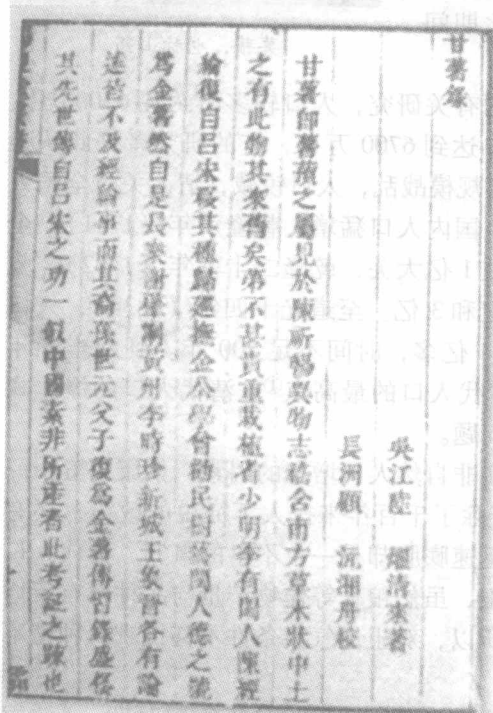 甘薯錄
吳江陸 燿
長洲顧 沅湘舟校
甘薯卽薯蕷之屬見於陳祈暢異物志嵇含南方草木狀中土
之有此物其來舊矣第不甚貴重栽植者少明季有閩人陳經
綸復自呂宋移其種歸巡撫金公學曾勸民樹藝閩人德之號
爲金薯然自是長樂謝肇淛黃州李時珍新城王象晉各有論
述皆不及經綸事而其裔孫世元父子復爲金薯傳習錄盛侈
其先世傳自呂宋之功一似中國素非所產者此考証之疎也